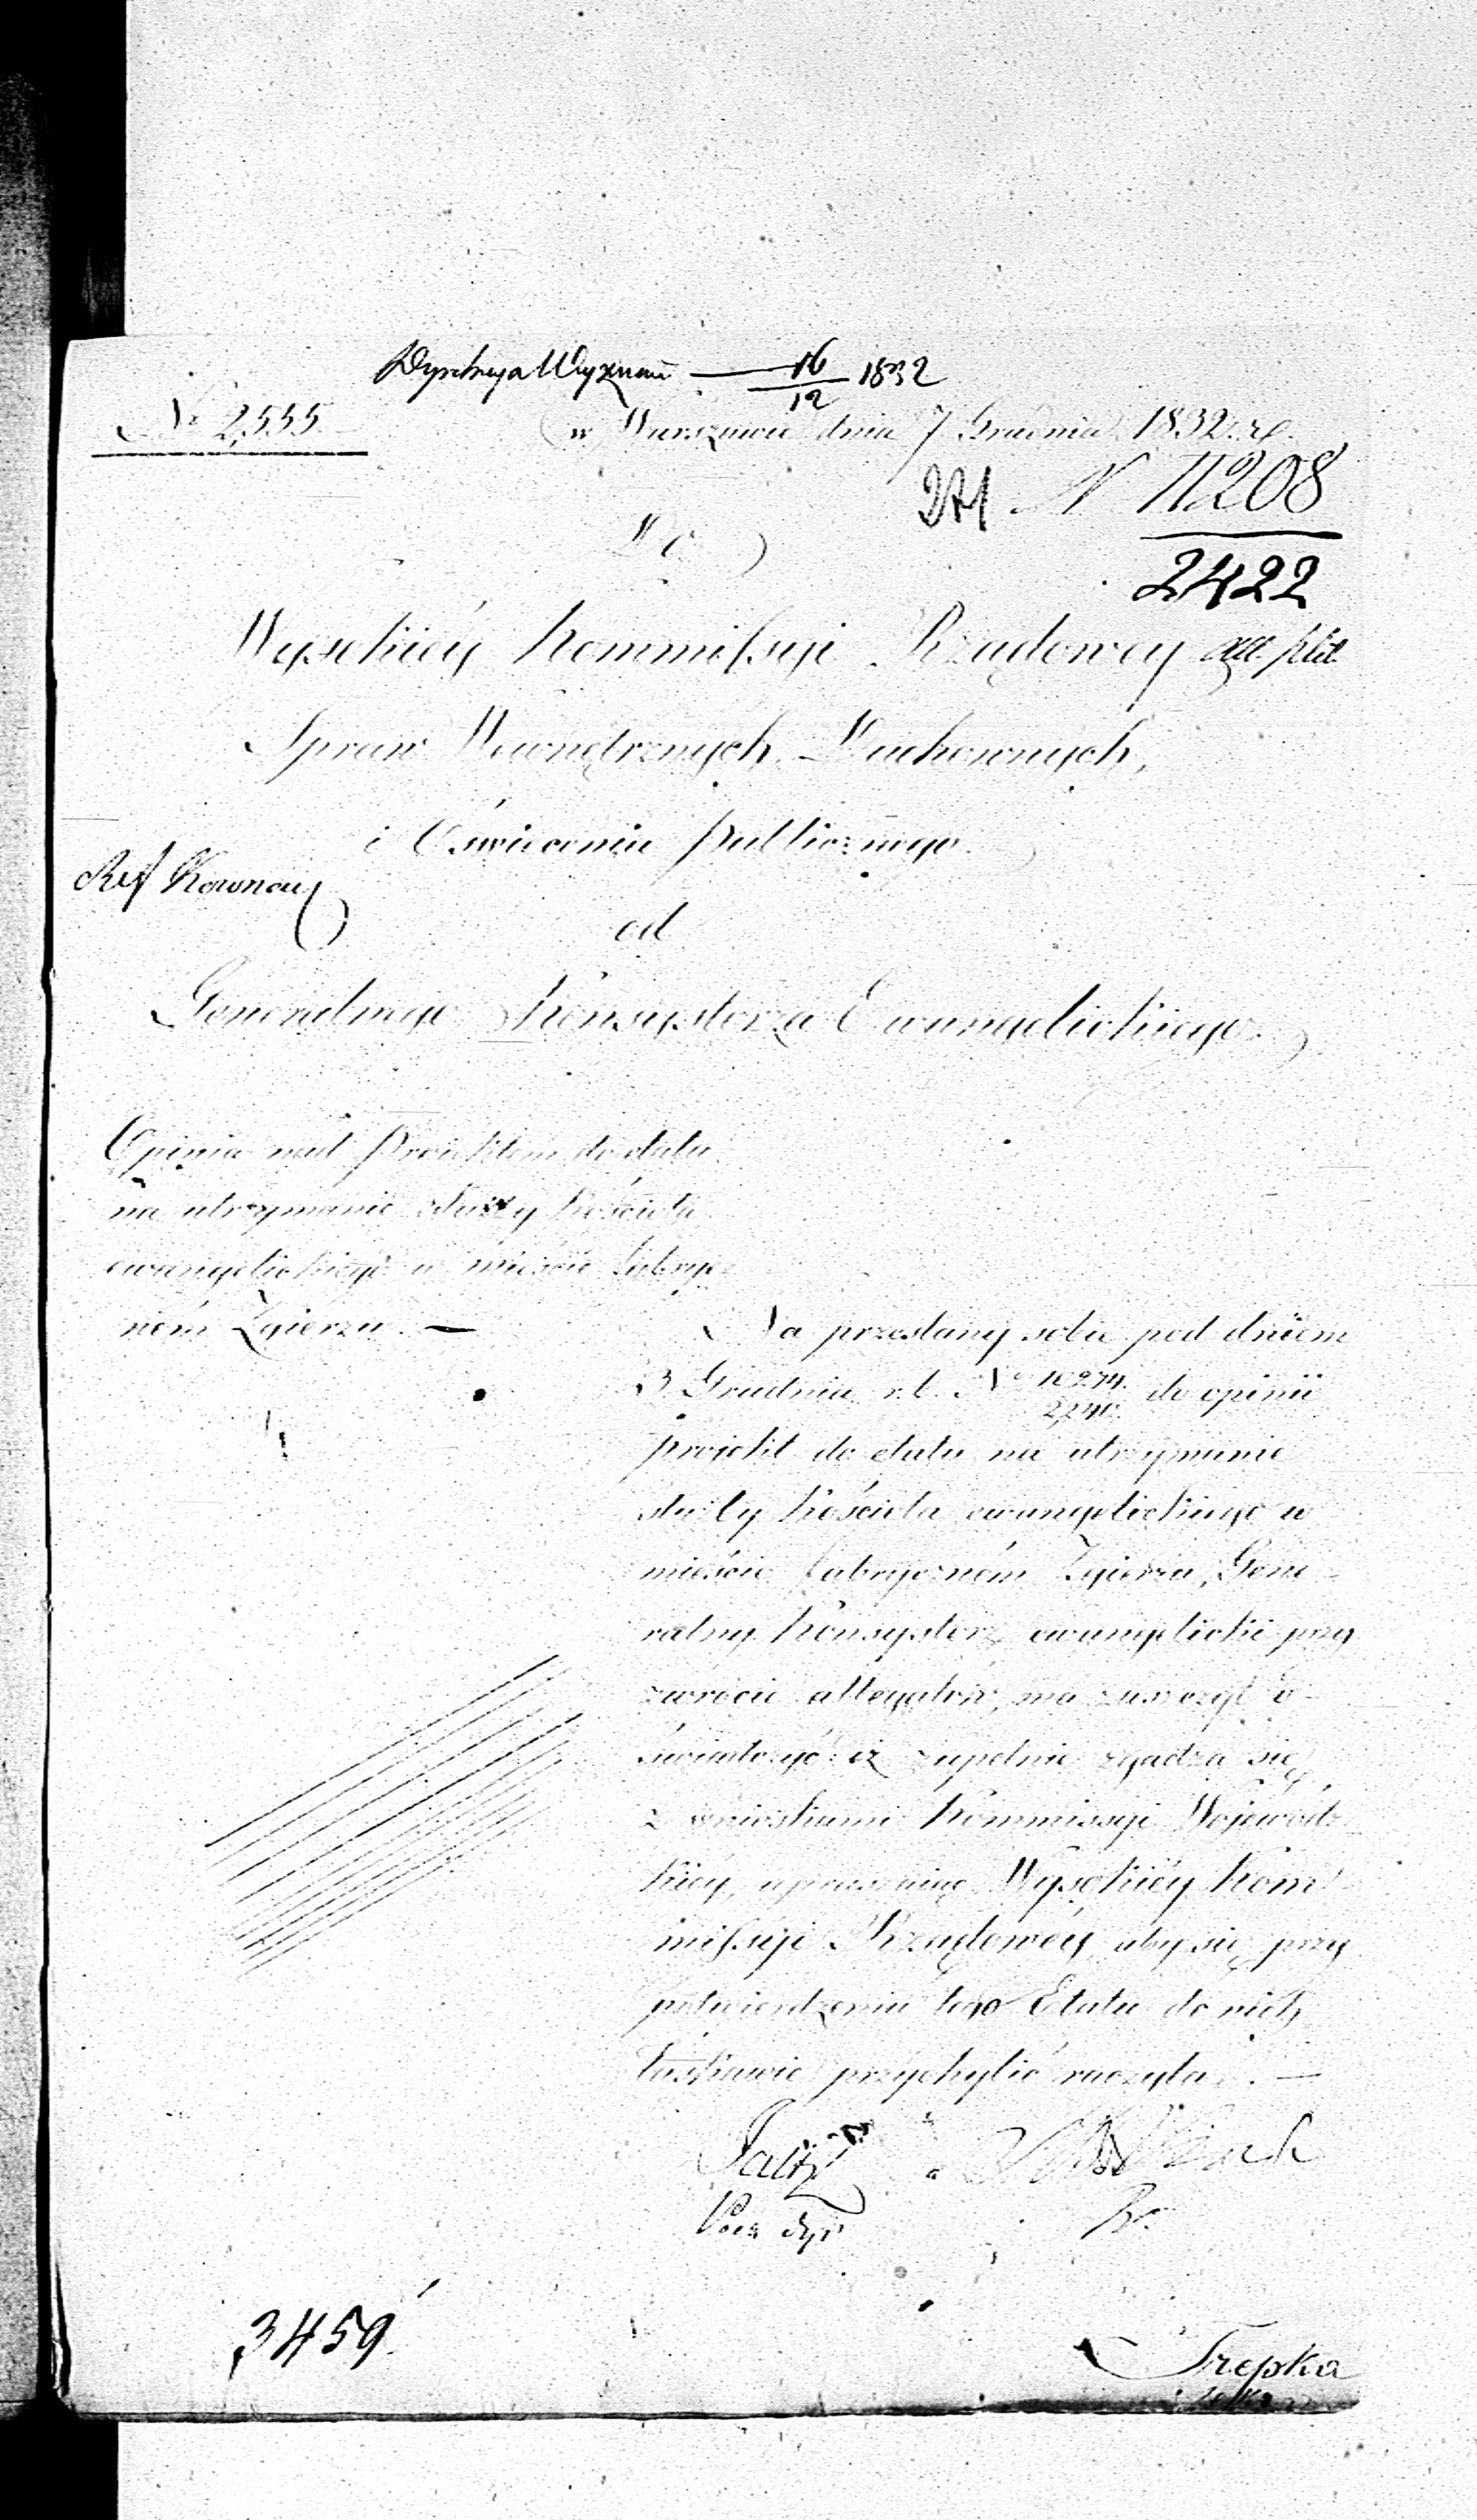 Dyrekcya Wyznań — 16/12 1832
№ 2,535.
w Warszawie dnia 7 Grudnia 1832. r.
N 11208
2422
Do
Wysokiéy Kommissyi Rządowéy
Spraw Wewnętrznych, Duchownych,
i Oświecenia Publicznego.
Ref
od
Generalnego Konsystorza Ewangelickiego.
Opinia nad Proiektem do etatu
na utrzymanie służby kościoła
ewangelickiego w mieście fabrycz
ném Zgierzu. —
Na przesłany sobie pod dniem
3 Grudnia r. b. No 10274./2240. do opinii
proiekt do etatu na utrzymanie
służby kościoła ewangelickiego w
mieście fabryczném Zgierzu, Gene-
ralny Konsystorz ewangelicki przy
zwrocie allegatów, ma zaszczyt o-
świadczyć: iż zupełnie zgadza się
z wnioskami Kommissyi Wojewódz
kiéy, upraszaiąc Wysokiéy Kom-
missyi Rządowéy, aby się przy
potwierdzeniu tego Etatu do nich
łaskawie przychylić raczyła. —
3459.
Trepka